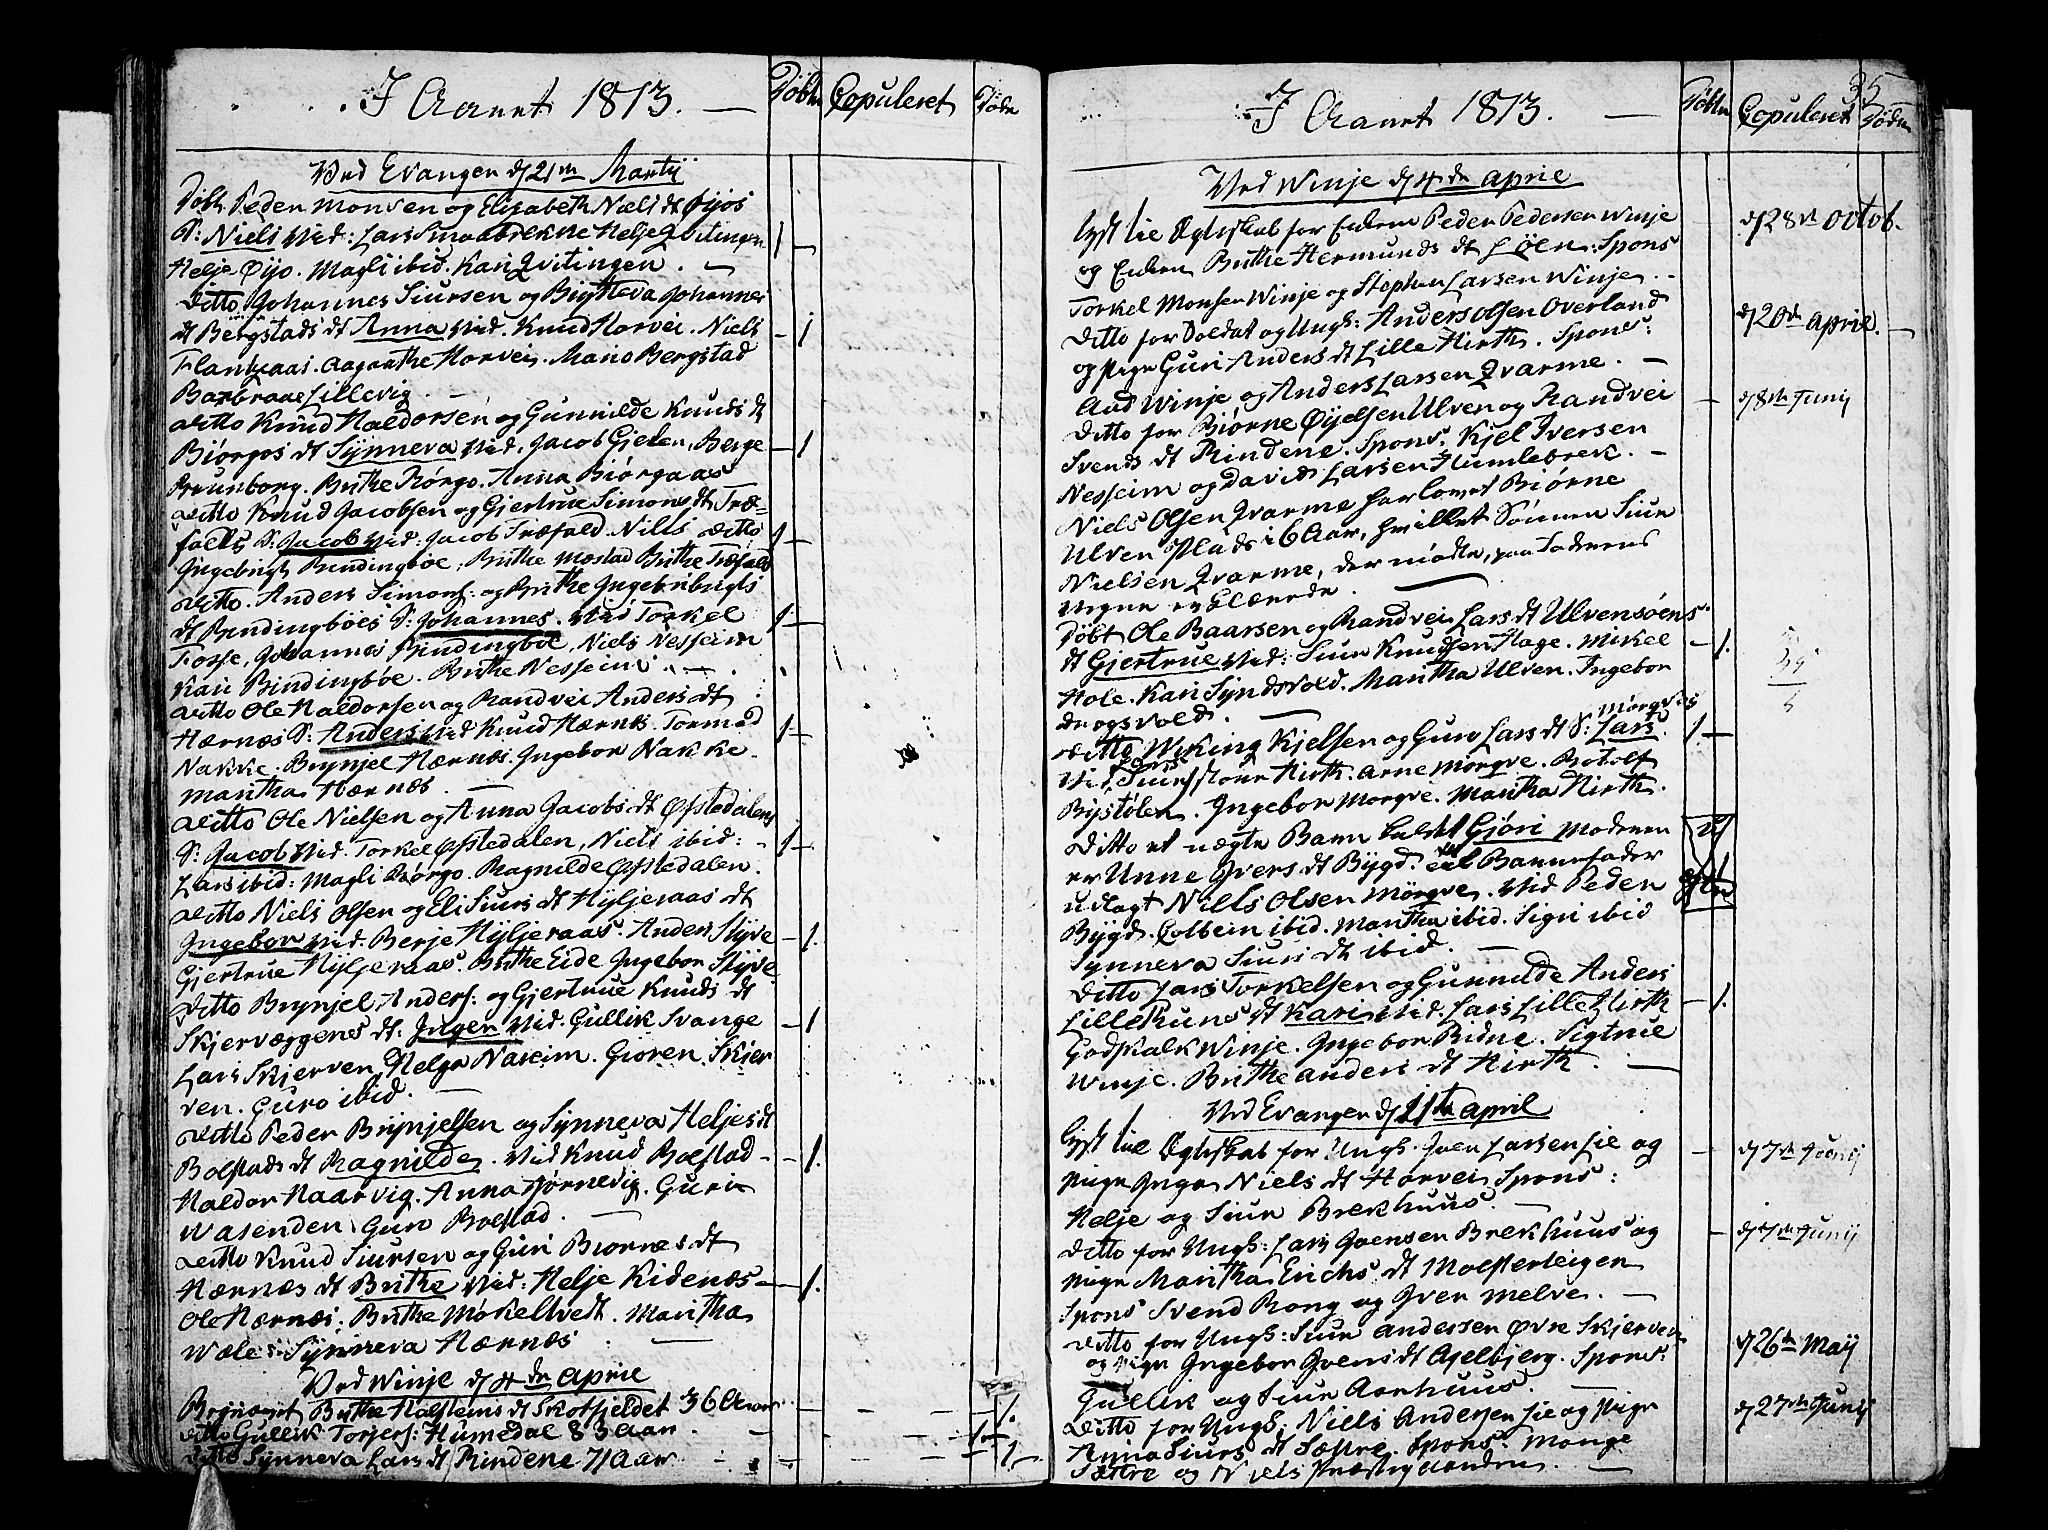 I Aaret 1813. — Døbte Copuleret Døde
Ved Evanger d 21de Martij
Døbt Peder Monsen og Elisabeth Niels dt Øÿos
S: Niels Vid: Lars Smaabrekke Helje Qvitingen
Helje Øijo. Magli ibid. Kari Qvitingen. —
Ditto Johannes Siursen og Brÿtteva Johannes
dt Bergstads dt Anna Vid. Knud Horvei. Niels
Flantzaas. Aagaathe Horvei. Mario Bergstad
Barbraae Lillevig —
Ditto Knud Haldorsen og Gunnilde Knuds dt
Biørgos dt Sÿnneva Vid. Jacob Gjelen. Berge
Brunborg. Brithe Rørgo. Anna Biørgaas
Ditto Knud Jacobsen og Gjertrue Simons dt Træ-
falds S: Jacob Vid: Jacob Træfald. Nills ditto
Ingebrigt Bindingbøe, Brithe Mostad Brithe Træfald
Ditto. Anders Simons: og Brithe Ingebribrigts
dt Bindingbøes S: Johannes. Vid Torkel
Fosse, Johannes Bindingbøe, Niels Nesseim
Kari Bindingbøe. Brithe Nesseim. —
Ditto Ole Haldorsen og Randvei Anders dt
Hærnæs S: Anders Vid Knud Hærnæs. Tormod
Nakke. Brÿnjel Hærnæs. Ingebor Nakke.
Maritha Hærnæs. —
Ditto Ole Nielsen og Anna Jacobs dt Øfstedalens
S: Jacob Vid. Torkel Øfstedalen, Niels ibid:
Lars ibid: Magli Rørgo. Ragnilde Øfstedalen.
Ditto Niels Olsen og Eli Siurs dt Hÿljeraas dt
Ingebor Vid. Berje Hÿljeraas. Anders Stÿve
Gjertrue Hÿljeraas. Brithe Eide Ingebor Stÿve
Ditto Brÿnjel Anders: og Gjertrue Knuds dt
Skjervæggenes dt: Inger Vid. Gullik Svange
Lars Skjerven, Helga Naseim. Gioren Skjer
ven. Guro ibid. —
Ditto Peder Brÿnjelsen og Sÿnneva Heljes dt
Bolstads dt Ragnilde. Vid Knud Bolstad
Haldor Haarvig. Anna Hørnevig. Guri
Wasenden Guro Bolstad. —
Ditto Knud Siursen og Guri Biørnes dt
Hærnæs dt Brithe Vid: Helje Kidenæs
Ole Hærnæs. Brithe Møkeltvedt. Maritha
Wæle Sÿnneva Hærnæs —
Ved Winje d 4de Aprie
Begravet Brithe Holsteins dt Skotfjeldet 36 Aar
Ditto Gullik Torjers: Humedal 83 Aar.
Ditto Sÿnneva Lars dt Rindene 71 Aar
35
I Aaret 1813. — Døbte Copuleret Døde
Ved Winje d 4de Aprie
Lÿst til Ægteskab for Enkem Peder Pedersen Winje d 28de Octob.
og Enken Brithe Hermunds dt Løen: Spons
Torkel Monsen Winje og Stephen Larsen Winje. —
Ditto for Soldat og Ungk: Anders Olsen Overland d 20de Aprie. —
og Pige Guri Anders dt Lille Hirth. Spons:
Aad Winje og Anders Larsen Qvarme. —
Ditto for Biørne Øÿelsen Ulven og Randvei d 8de Junij
Svends dt Rindene. Spons. Kjel Iversen
Nesseim og David Larsen Humlebrek. —
Niels Olsen Qvarme har lovet Biørne
Ulven Plads i 6 Aar, hvillket Sønnen Siur
Nielsen Qvarme, der mødte, paa Faderens
Vegne erklærede. —
Døbt Ole Baarsen og Randvei Lars dt Ulvensøens
dt Gjertrue Vid: Siur Knudsen Hage. Mikel
Hole. Kari Sÿndsvold. Maritha Ulven. Ingebor
Drogsvold. —
Ditto Wiking Kjelsen og Guro Lars dt Mørgves S: Lars
Vid, Siur store Hirth. Arne Mørgve. Botolf
Bÿstølen. Ingebor Mørgve. Maritha Hirth.
Ditto et uægte Barn kaldet Gjøri Moderen
er Unne Ivers dt Bÿgd. til Barnefader
udlagt Nills Olsen Mørgve. Vid Peder
Bÿgd. Colbein ibid. Maritha ibid. Sigri ibid
Sÿnneva Siurs dt ibid. —
Ditto Lars Torkelsen og Gunnilde Anders
dt Kari Vid. Lars Lille Hirth
Godskalk Winje. Ingebor Ridne. Sigtrue
Winje. Brithe Anders dt Hirth. —
Ved Evanger d 11te April
Lÿst til Ægteskab for Ungk. Iven Larsen Lie og d 7de Junij
Pige Inga Niels dt Horvei Spons:
Helje og Siur Brekhuus. —
Ditto for Ungk: Lars Ivensen Brekhuus og d 7de Junij
Pige Maritha Erichs dt Molsterteigen
Spons Svend Rong og Iver Melve. —
Ditto for Ungk: Siur Andersen Øvre Skjerven d 26de Maij
og Pige Ingebor Ivens dt Aselbjerg. Spons:
Gullik og Siur Aarhuus. —
Ditto for Ungk: Niels Andersen Lie og Pige d 27de Junij
Anna Siurs dt Sættre. Spons. Monge
Sættre og Niels